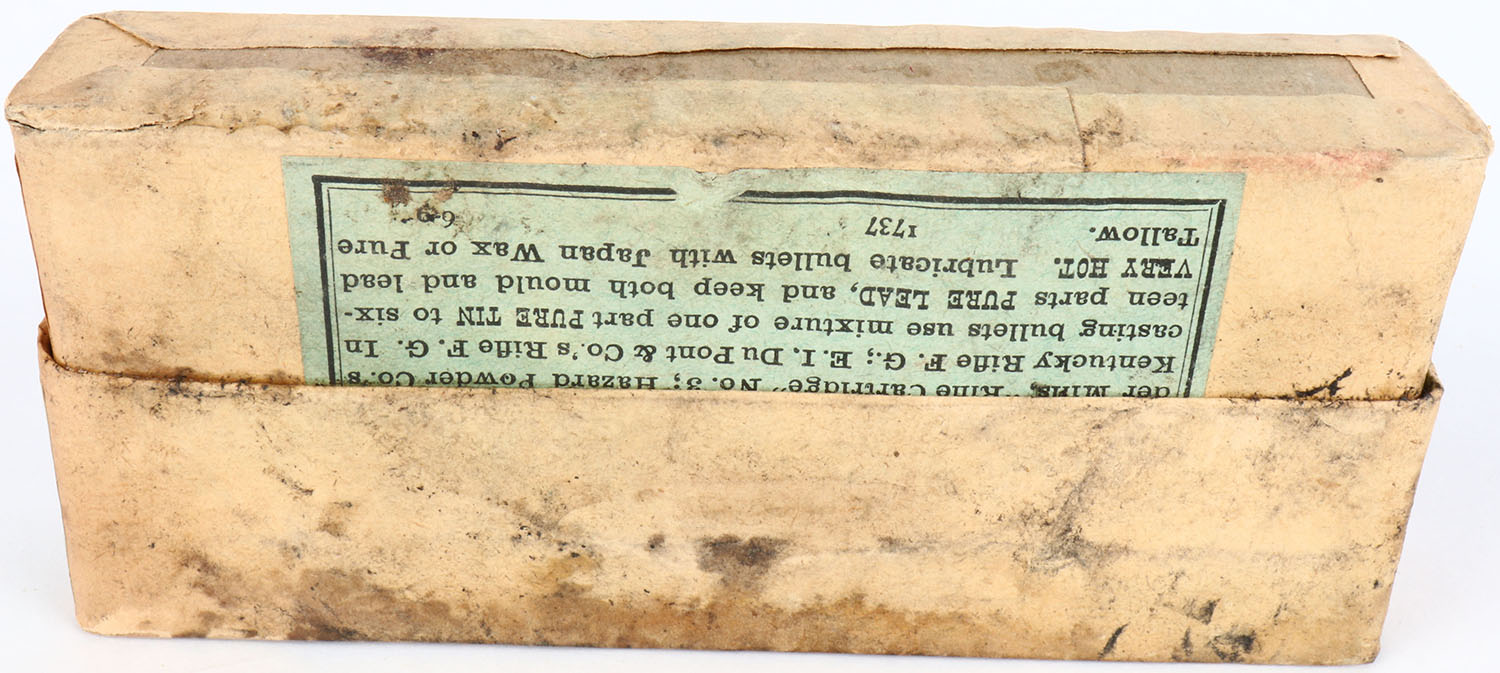 der Mills, "Rifle Cartridge" No. 3; Hazard Powder Co.'s
Kentucky Rifle F. G.; E. I. Du Pont & Co.'s Rifle F. G. In
casting bullets use mixture of one part PURE TIN to six-
teen parts PURE LEAD, and keep both mould and lead
VERY HOT. Lubricate bullets with Japan Wax or Pure
Tallow.
1737 6-9